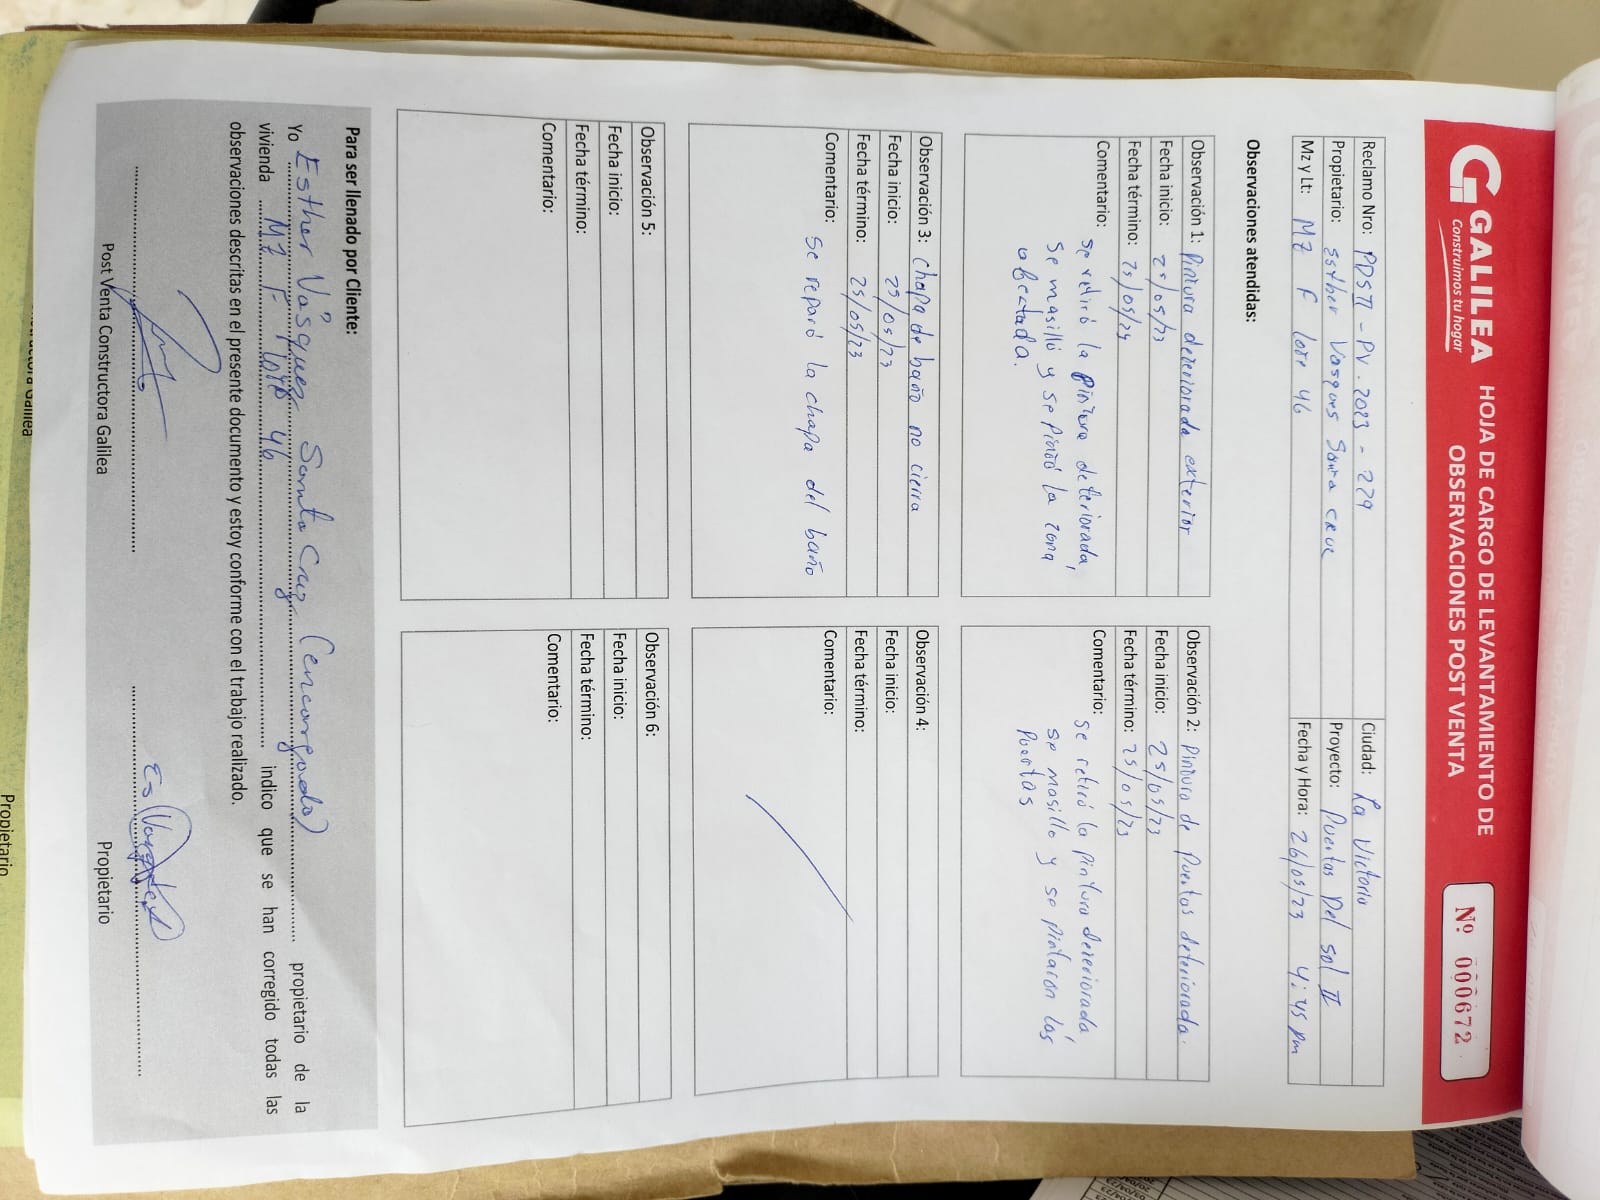 GALILEA
Construimos tu hogar
HOJA DE CARGO DE LEVANTAMIENTO DE
OBSERVACIONES POST VENTA
Nº 000672
Reclamo Nro: PDSII - PV. 2023 - 229
Ciudad: La Victoria
Propietario: Esther Vasques Santa Cruz
Proyecto: Puertas Del Sol II
Mz y Lt: MZ F lote 46
Fecha y Hora: 26/05/23 4:45 pm
Observaciones atendidas:
Observación 1: Pintura deteriorada exterior
Fecha inicio: 25/05/23
Fecha término: 25/05/23
Comentario: se retiró la pintura deteriorada,
se masilló y se pintó la zona
afectada.
Observación 2: Pintura de Puertas deteriorada.
Fecha inicio: 25/05/23
Fecha término: 25/05/23
Comentario: se retiró la pintura deteriorada,
se masillo y se pintaron las
Puertas
Observación 3: chapa de baño no cierra
Fecha inicio: 25/05/23
Fecha término: 25/05/23
Comentario:
Se reparó la chapa del baño
Observación 4:
Fecha inicio:
Fecha término:
Comentario:
Observación 5:
Fecha inicio:
Fecha término:
Comentario:
Observación 6:
Fecha inicio:
Fecha término:
Comentario:
Para ser llenado por Cliente:
Yo Esther Vásquez Santa Cruz (encargado) propietario de la
vivienda MZ F lote 46 indico que se han corregido todas las
observaciones descritas en el presente documento y estoy conforme con el trabajo realizado.
Post Venta Constructora Galilea
Propietario
Propietario